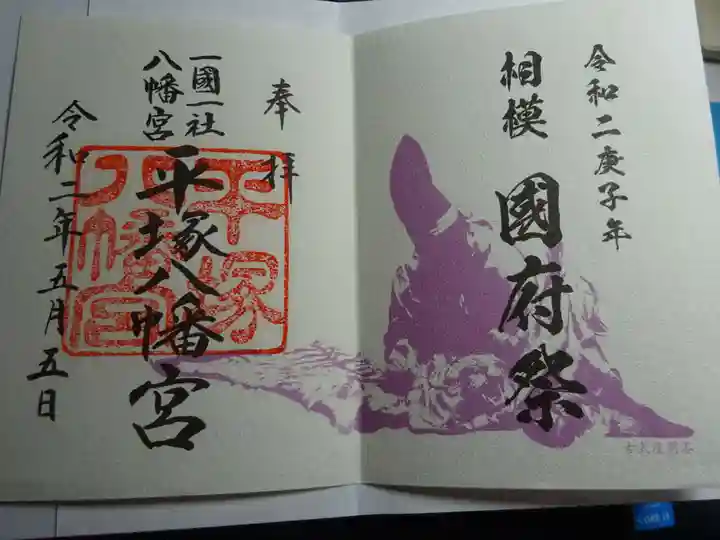 令和二庚子年
相模
國府祭
奉拝
一國一社
八幡宮
平塚八幡宮
平塚
八幡宮
令和二年五月五日